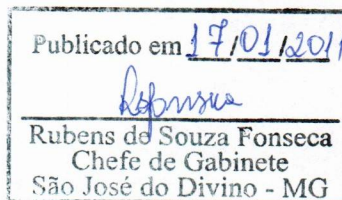 Publicado em 17/01/2011
Rubens de Souza Fonseca
Chefe de Gabinete
São José do Divino - MG